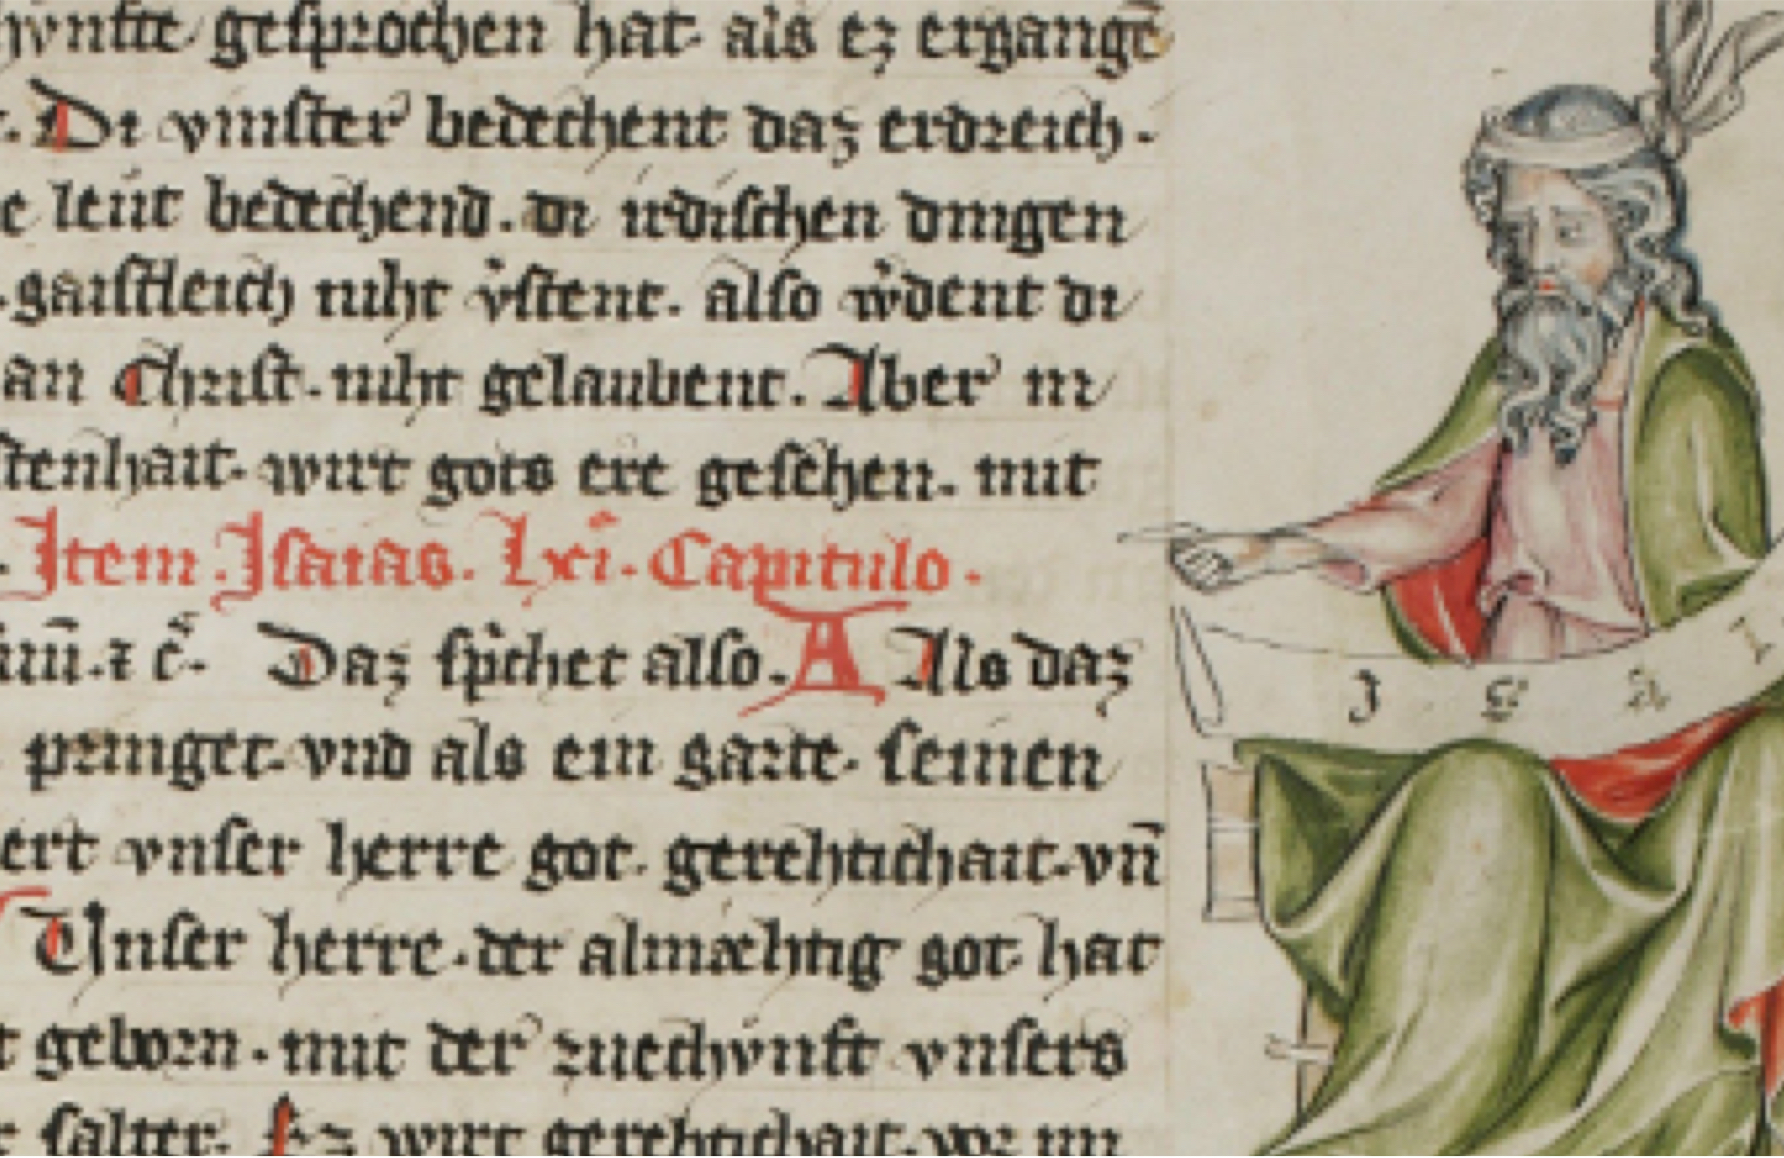 chvnftt gesprochen hat. als ez ergangē
. Di vinster bedechent daz erdreich.
e leüt bedechend. di irdischen dingen
. gaistleich niht v̓stent. also w̓dent di
an Christ. niht gelaubent. Aber in
stenhait. wirt gots ere gesehen. mit
. Item. Isaias. Lxi. Capitulo.
Daz sp̓chet also. A Als daz
pringet. vnd als ein garte. seinen
ert vnser herre got. gerehtichait. vn̄
Unser herre. der almæhtig got hat
t geborn. mit der zuechvnft vnsers
salter. Ez wirt gerehtichait. vor im
I S A I